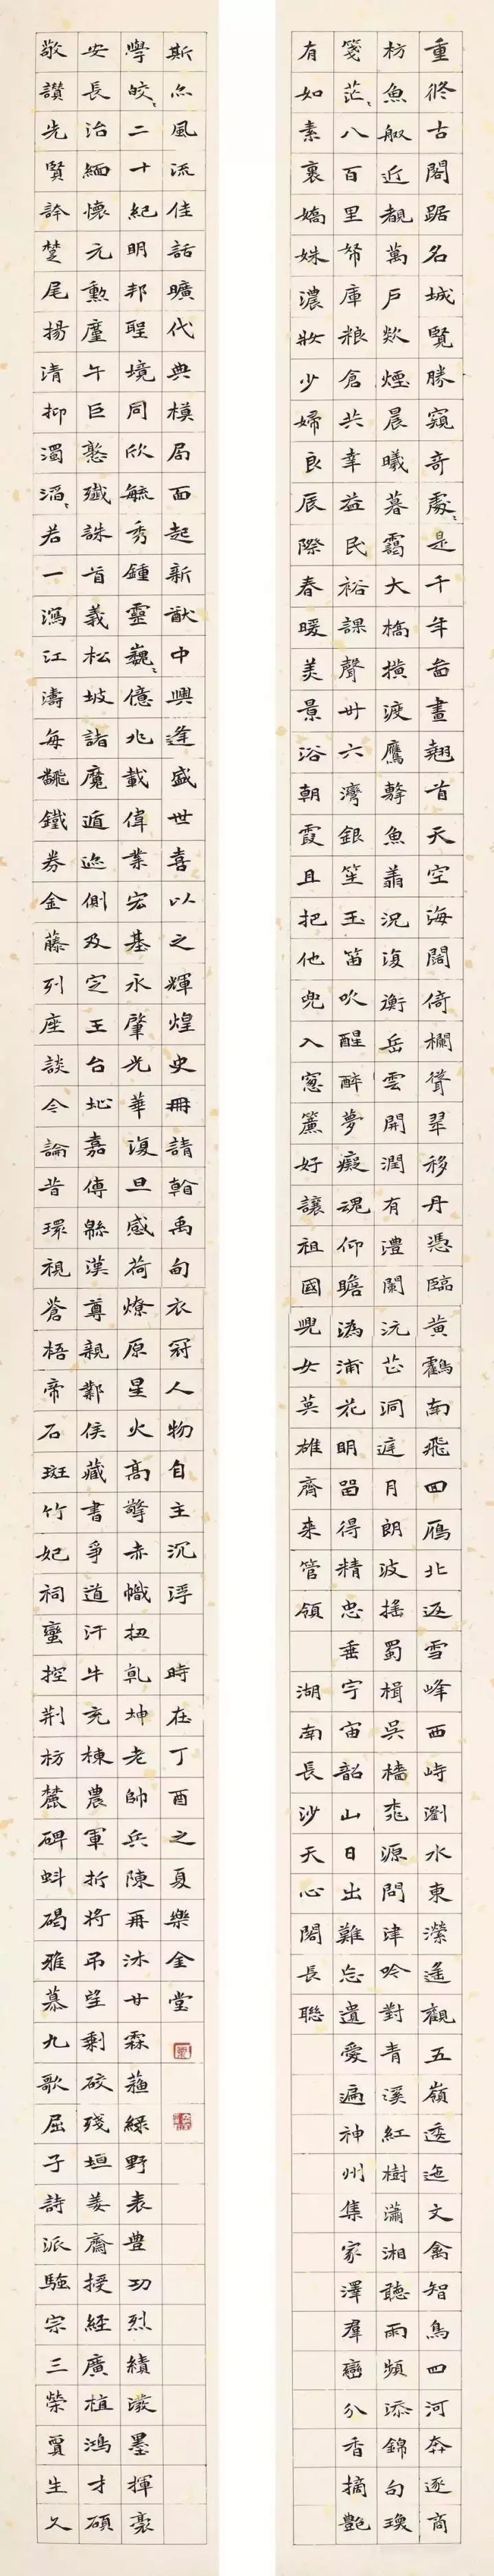 重修古閣踞名城覽勝窺奇處〻是千年啚畫翹首天空海闊倚欄聳翠移丹憑臨黃鶴南飛四雁北返雪峰西峙瀏水東瀠遙觀五嶺逶迤文禽智鳥四河奔逐商
枋魚舣近覩萬戶炊煙晨曦暮靄大橋橫渡鷹擊魚翥況復衡岳雲開潤有澧闌沅芷洞庭月朗波搖蜀楫吳檣桃源問津吟對青溪紅樹瀟湘聽雨頻添錦句瓊
箋茫〻八百里帑庫粮倉共幸益民裕課聲卅六灣銀笙玉笛吹醒醉夢癡魂仰瞻溈浦花明留得精忠垂宇宙韶山日出難忘遺愛遍神州集家澤羣巒分香摘艷
有如素裏嬌姝濃妝少婦良辰際春暖美景浴朝霞且把他兜入窓簾好讓祖國兒女英雄齊来管領 湖南長沙天心閣長聯
敬讚先賢誇楚尾揚清抑濁滔〻若一瀉江濤每翻鐵券金藤列座談今論昔環視蒼梧帝石斑竹妃祠蠻控荆枋麓碑蚪碣雅慕九歌屈子詩派騷宗三榮賈生久
安長治緬懷元勳塵午巨憝殲誅首義松坡諸魔遁迹側及定王台址嘉傳緜漢尊親鄴侯藏書爭道汗牛充棟農軍折將吊望剩破殘垣姜齋授經廣植鴻才碩
學皎〻二十紀明邦聖境同欣毓秀鍾靈巍〻億兆載偉業宏基永肇光華復旦感荷燎原星火高擎赤幟扭乾坤老帥兵陳再沐甘霖蘓緑野表豊功烈績潑墨揮毫
斯亦風流佳話曠代典模局面起新猷中興逢盛世喜以之輝煌史冊請翰禹甸衣冠人物自主沉浮 時在丁酉之夏樂金堂